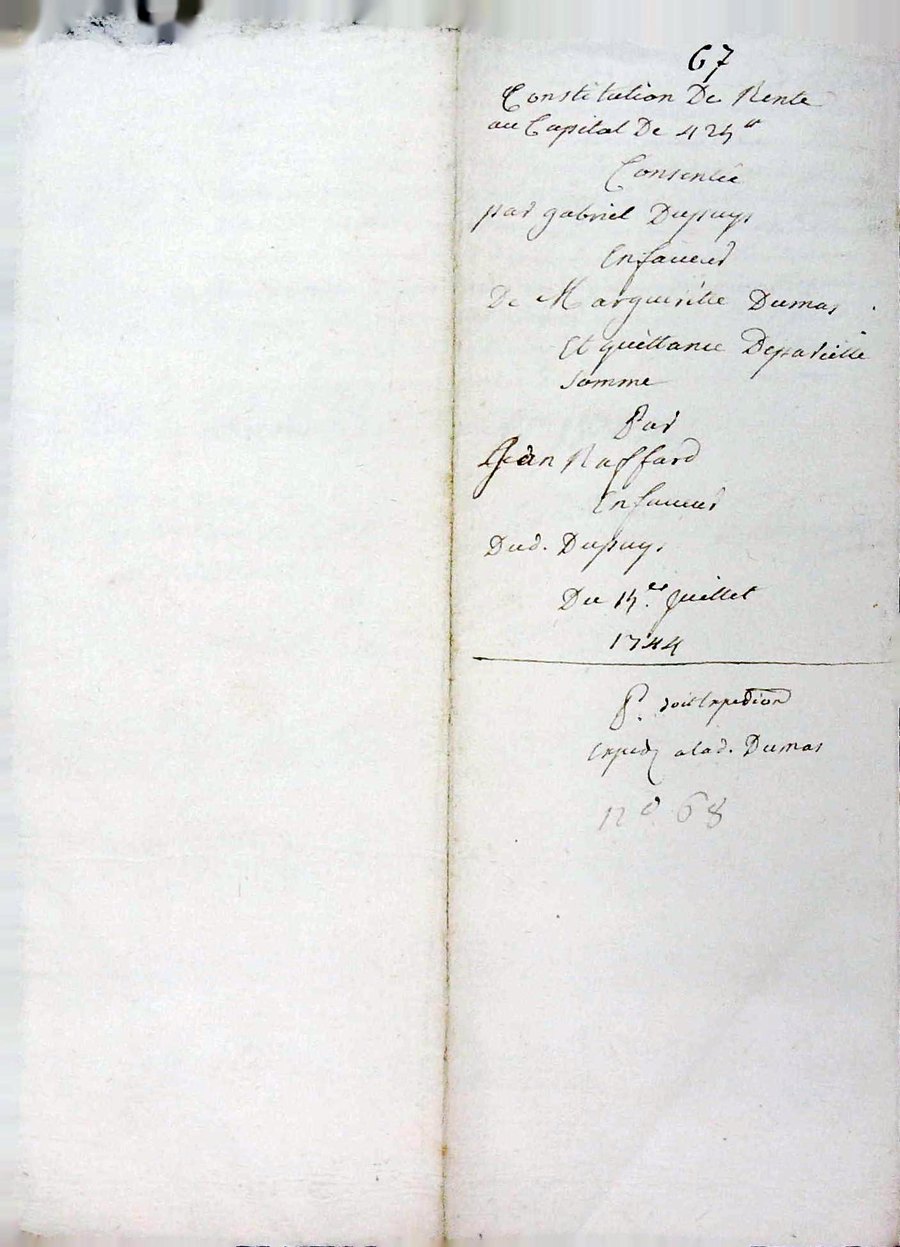 67
Constitution De Rente
au Capital De 425ᵗᵗ
Consentie
par gabriel Dupuys
Enfaveur
De Margueritte Dumas
Et quittance Depareille
Somme
Par
Jean Raffard
Enfaveur
Dud. Dupuys
Du 15.ᵉʳ Juillet
1744
P.
Exped alad. Dumas
nº 68